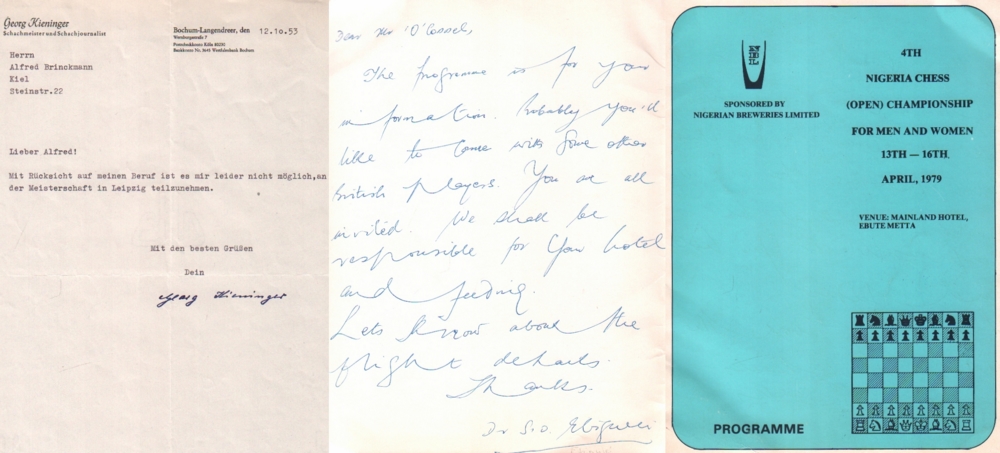 Georg Kieninger
Schachmeister und Schachjournalist
Bochum-Langendreer, den 12.10.53
Herrn
Alfred Brinckmann
Kiel
Steinstr.22
Lieber Alfred!
Mit Rücksicht auf meinen Beruf ist es mir leider nicht möglich,an
der Meisterschaft in Leipzig teilzunehmen.
Mit den besten Grüßen
Dein
Georg Kieninger
Dear Mr
The programme is for your
information. Probably you'd
like to come with some other
British players. You are all
invited. We shall be
responsible for your hotel
and feeding.
Lets know about the
flight details.
Thanks.
Dr S.O.
SPONSORED BY
NIGERIAN BREWERIES LIMITED
4TH
NIGERIA CHESS
(OPEN) CHAMPIONSHIP
FOR MEN AND WOMEN
13TH — 16TH
APRIL, 1979
VENUE: MAINLAND HOTEL,
EBUTE METTA
PROGRAMME